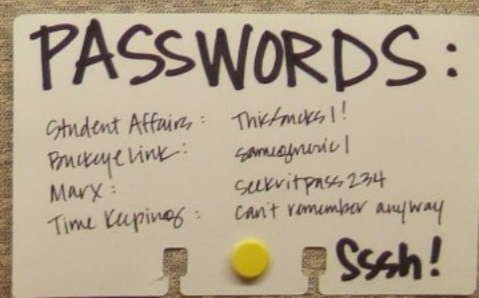 PASSWORDS:
Student Affairs: ThisSucks1!
Buckeye Link: somegeneric1
Marx: seekritpass234
Time Keeping: can't remember anyway
Sssh!